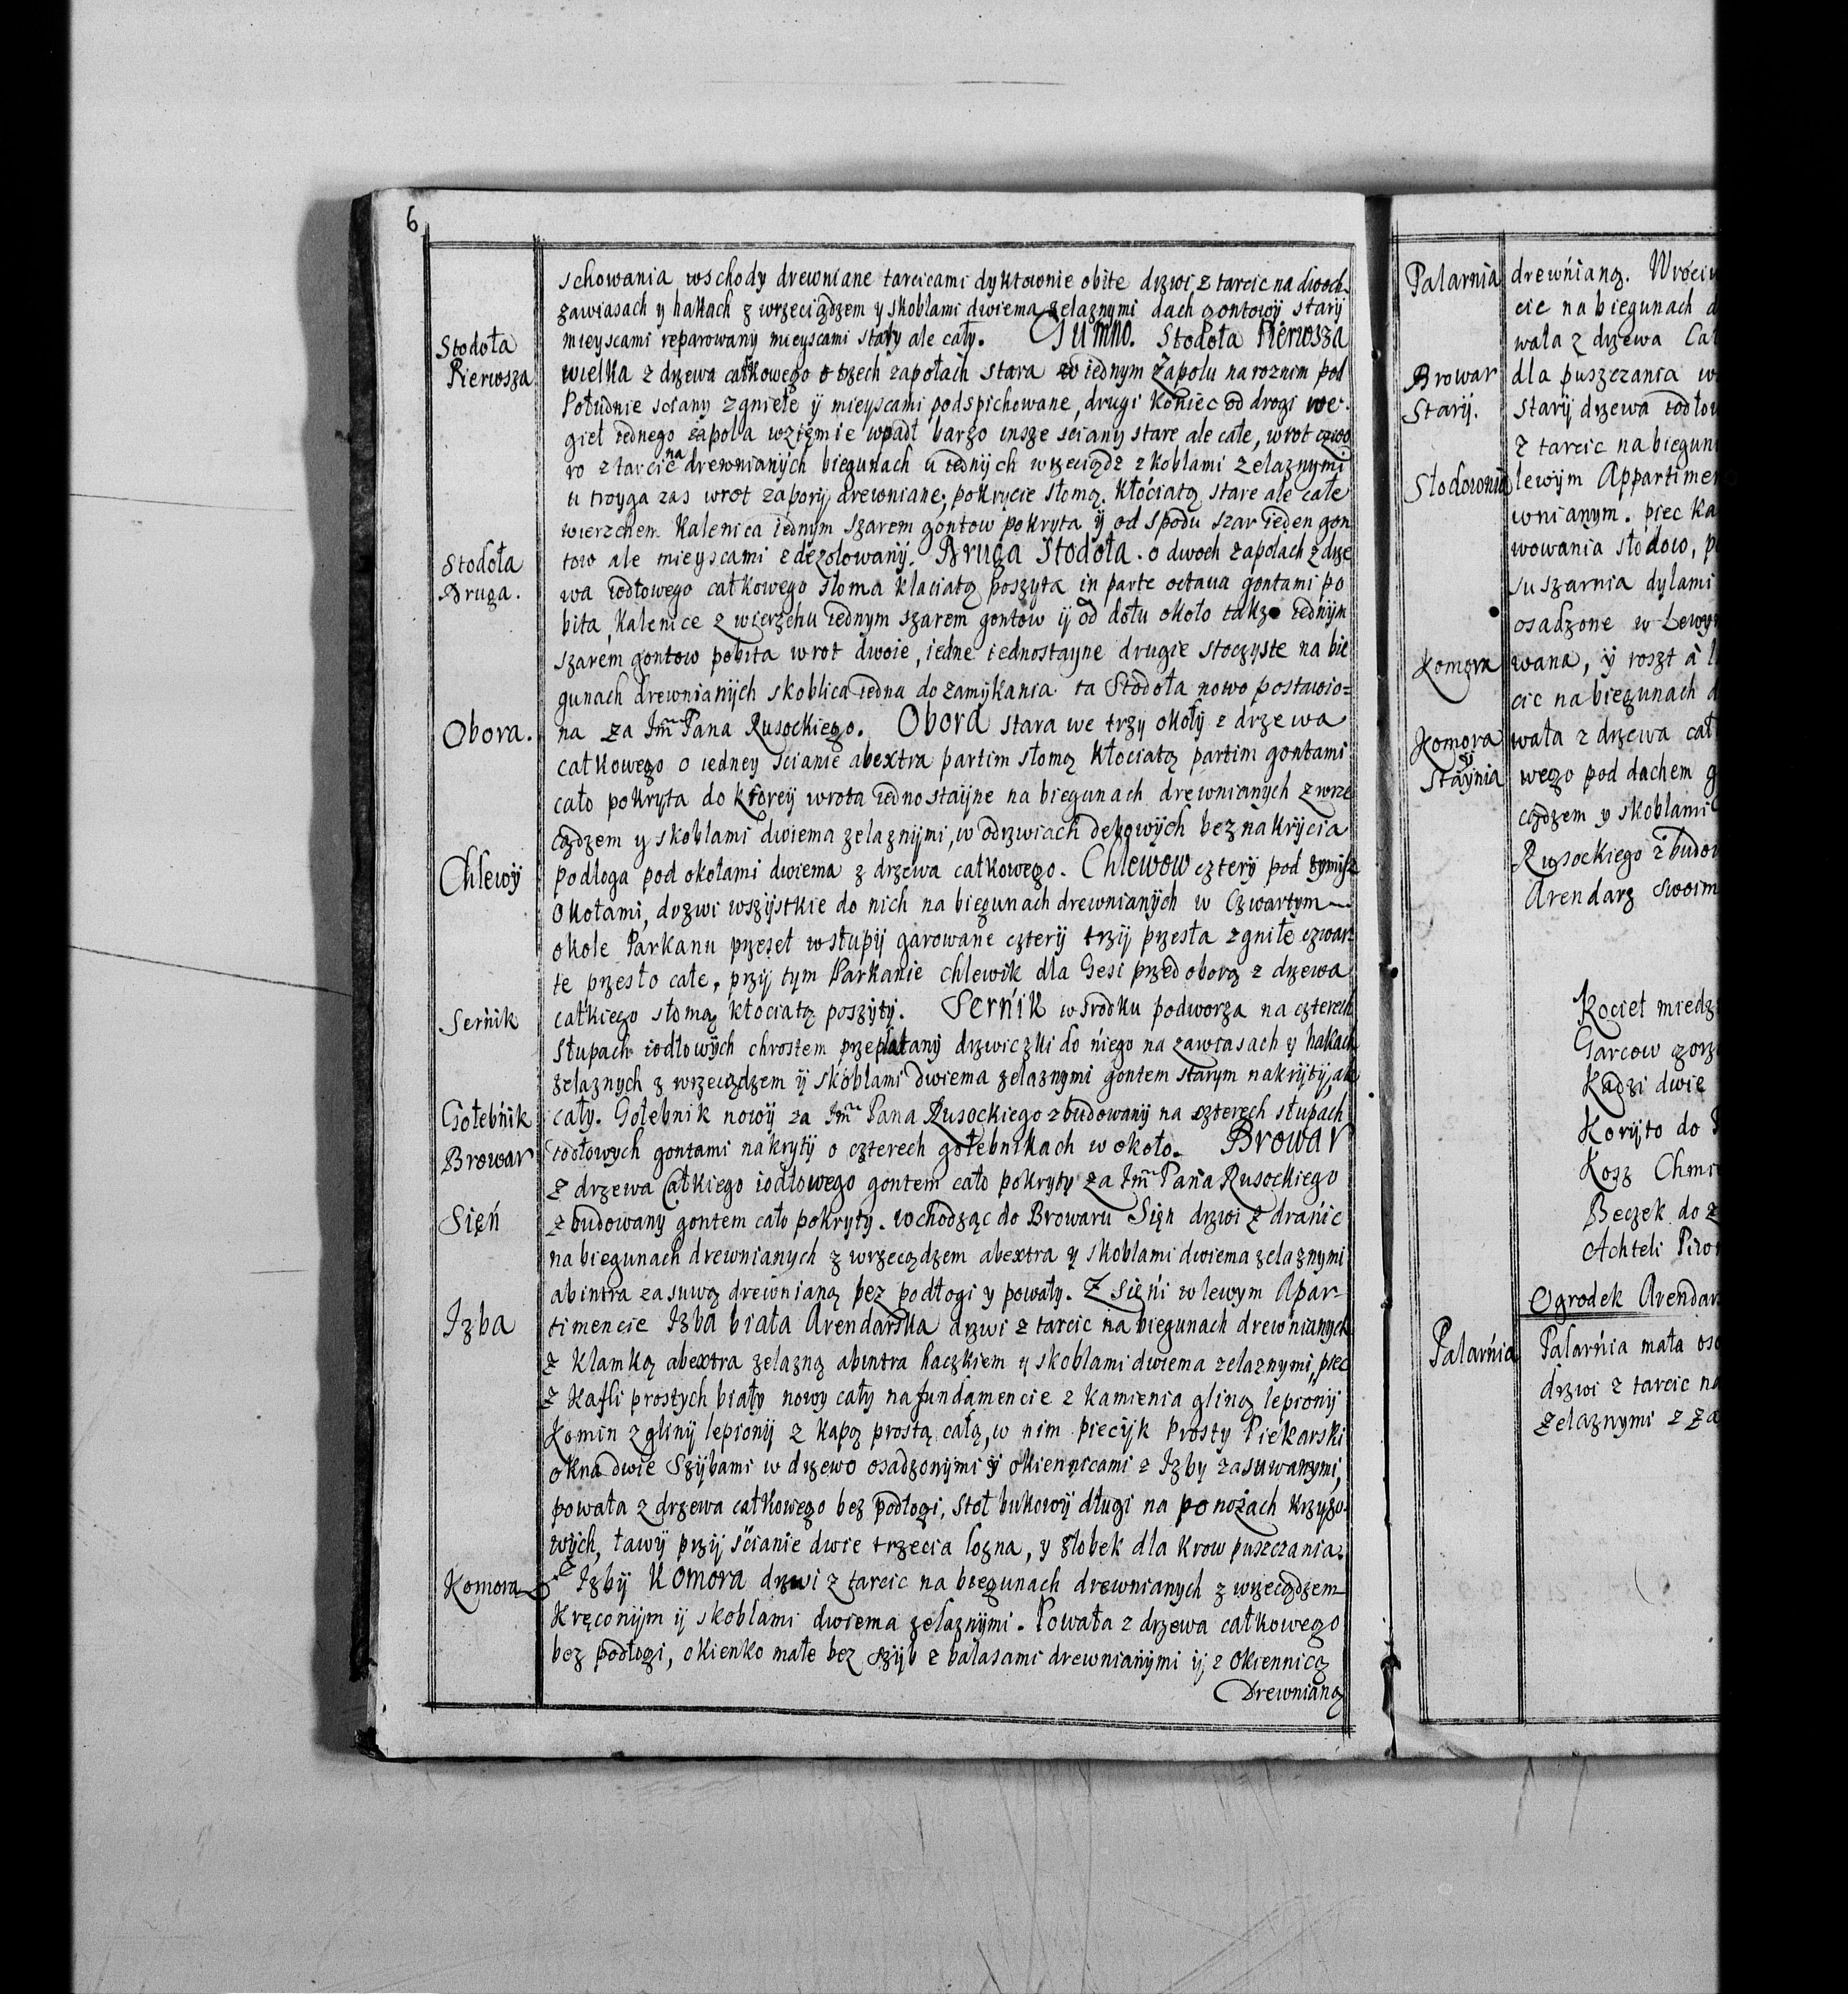 6
schowania, wschody drewniane tarcicami dyktownie obite drzwi z tarcic na dwoch
zawiasach y hakach z wrzeciądzem y skoblami dwiema zelaznymi dach gontowy stary
mieyscami reparowany mieyscami stary ale cały. Gumno. Stodoła Pierwsza
Stodoła
Pierwsza
wielka z drzewa całkowego o trzech zapołach stara w iednym zapolu na roznim pod
Południe sciany zgniełe ÿ mieyscami podspichowane, drugi koniec od drogi we-
gieł iednego zapola wzięmie wpadł barzo insze sciany stare ale całe, wrot czwo
ro z tarcic na drewnianych biegunach u iednych wrzeciądz z koblami zelaznymi
u troyga zas wrot zapory drewniane; pokrycie słomą kłóciatą stare ale całe
wierzchem Kalenica iednym szarem gontow pokryta ÿ od spodu szar ieden gon
tow ale mieyscami zdezolowany. Druga Stodoła. o dwoch zapolach z drze
Stodoła
Druga.
wa iodłowego całkowego słoma kłaciatą poszyta in parte octaua gontami po
bita, Kalenice z wierzchu iednym szarem gontow ÿ od dołu około także iednym
szarem gontow pobita wrot dwoie, iedne iednostayne drugie stoczyste na bie
gunach drewnianych skoblica iedna do zamykania ta Stodoła nowo postawio=
Obora.
na za Jm Pana Rusockiego. Obora stara we trzy okoły z drzewa
całkowego o iedney scianie abextra partim słomą kłociatą partim gontami
cało pokryta do ktorey wrota iednostayne na biegunach drewnianych z wrze
cądzem y skoblami dwiema zelaznymi, w odrzwiach dębowych bez nakrycia
Chlewy
podłoga pod okołami dwiema z drzewa całkowego. Chlewow cztery pod tymisz
Okołami, drzwi wszystkie do nich na biegunach drewnianych w Czwartym
okole Parkanu przeseł w słupy garowane cztery trzy przesła zgniłe czwar
te przesło całe, przy tym Parkanie chlewik dla Gesi przed oborą z drzewa
Sernik
całkiego słomą kłociatą poszyty. Sernik w srodku podworza na czterech
słupach iodłowych chrostem przeplatany drzwiczki do niego na zawiasach y hakach
zelaznych z wrzecądzem ÿ skoblami dwiema zelaznymi gontem starym nakryty, ale
Gołebnik
cały. Gołebnik nowy za Jm Pana Rusockiego zbudowany na czterech słupach
Browar
iodłowych gontami nakryty o czterech gołebnikach w około. Browar
z drzewa Całkiego iodłowego gontem cało pokryty za Jm Pana Rusockiego
Sień
zbudowany gontem cało pokryty. wchodząc do Browaru Sięn drzwi z dranic
na biegunach drewnianych z wrzecądzem abextra y skoblami dwiema zelaznymi
abintra zasuwą drewnianą bez podłogi y powały. Z Sięni w lewym Apar-
Izba
timencie Izba biała Arendarska drzwi z tarcic na biegunach drewnianych
z Klamką abextra zelazną abintra haczkiem y skoblami dwiema zelaznymi, piec
z Kafli prostych biały nowy cały na fundamencie z kamienia gliną lepiony
Komin z gliny lepiony z kapą prostą całą, w nim piecyk Prosty Piekarski
okna dwie Szybami w drzewo osadzonymi y okiennicami z Izby zasuwanymi,
powała z drzewa całkowego bez podłogi, stoł bukowy długi na ponożach krzyżo-
wych, ławy przy scianie dwie trzecia lozna, y złobek dla krow puszczania.
Komora
z Izby Komora drzwi z tarcic na biegunach drewnianych z wrzecądzem
Kręconym ÿ skoblami dwiema zelaznymi. Powała z drzewa całkowego
bez podłogi, okienko małe bez szyb z balasami drewnianymi ÿ z okiennicą
Drewnianą
Palarnia
drewnianą.
cic na biegunach
wała z drzewa
Browar
Stary.
dla puszczania
Stary drzewa
z tarcic na biegun
Słodownia
lewym Appartimen
wnianym. piec
wowania słodow,
suszarnia dylami
osadzone w Lewy
Komora
wana, y roszt
cic na biegunach
Komora
y
Staynia
wała z drzewa cał
wego pod dachem
cądzem y skoblami
Rusockiego zbudow
Arendarz swoim
Kocieł miedz
Garcow gorz
Kadzi dwie
Koryto do
Kosz Chmi
Beczek do
Achteli Piwo
Ogrodek Arendar
Palarńia
Palarńia mała
drzwi z tarcic na
zelaznymi z za